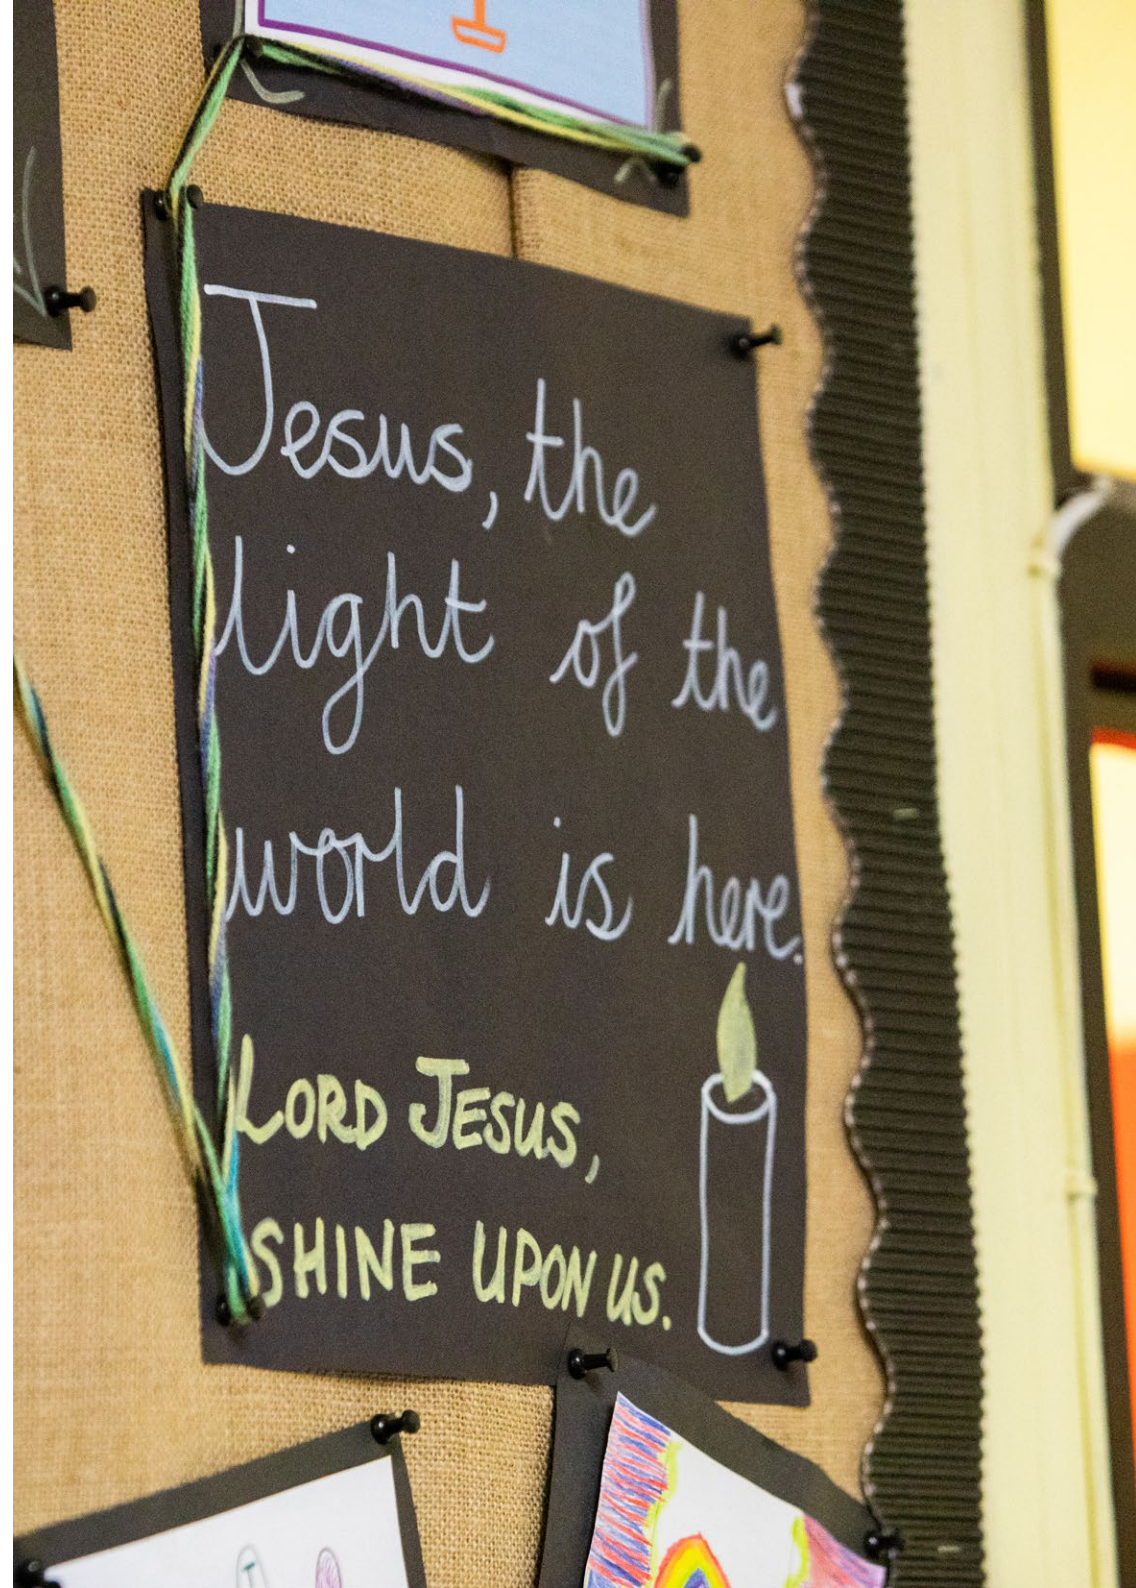 Jesus, the
light of the
world is here.
LORD JESUS,
SHINE UPON US.